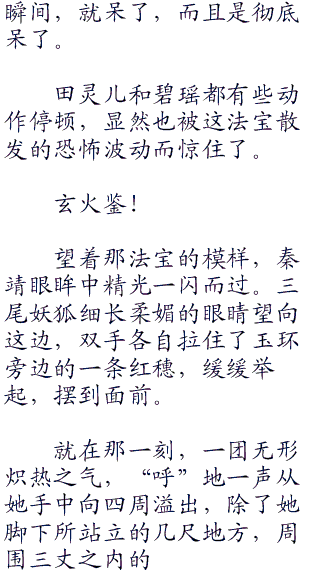 瞬间，就呆了，而且是彻底
呆了。
田灵儿和碧瑶都有些动
作停顿，显然也被这法宝散
发的恐怖波动而惊住了。
玄火鉴！
望着那法宝的模样，秦
靖眼眸中精光一闪而过。三
尾妖狐细长柔媚的眼睛望向
这边，双手各自拉住了玉环
旁边的一条红穗，缓缓举
起，摆到面前。
就在那一刻，一团无形
炽热之气，“呼”地一声从
她手中向四周溢出，除了她
脚下所站立的几尺地方，周
围三丈之内的